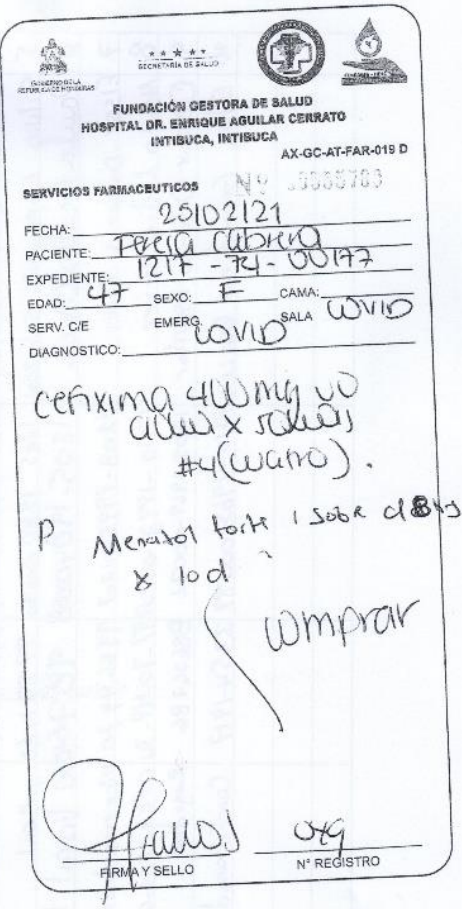 GOBIERNO DE LA
REPUBLICA DE HONDURAS
SECRETARÍA DE SALUD
FUNDACIÓN GESTORA DE SALUD
HOSPITAL DR. ENRIQUE AGUILAR CERRATO
INTIBUCA, INTIBUCA
AX-GC-AT-FAR-019 D
SERVICIOS FARMACEUTICOS Nº
FECHA: 25/02/21
PACIENTE: Teresa Cabrera
EXPEDIENTE: 1217-74-00177
EDAD: 47 SEXO: F CAMA:
SERV. C/E EMERG SALA COVID
DIAGNOSTICO: COVID
Cefixima 400 mg VO
x
#4 (cuatro).
P Menatol forte 1 sobre c/8 hs
x 10 d
comprar
FIRMA Y SELLO Nº REGISTRO